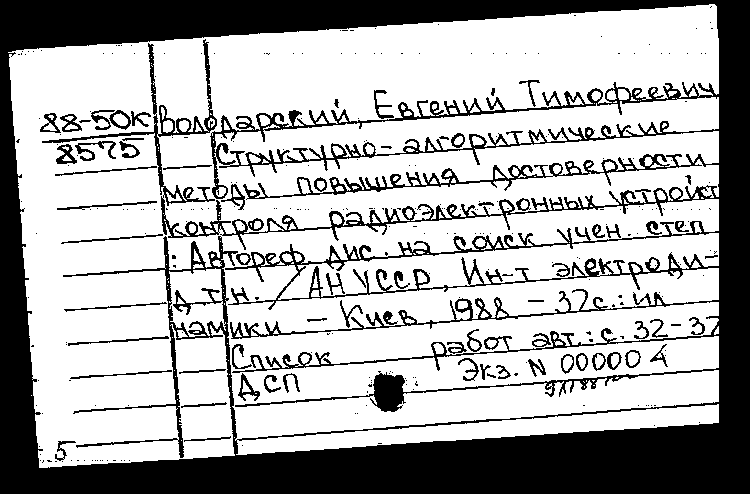 88-50К Володарский, Евгений Тимофеевич
8575 Структурно-алгоритмические
методы повышения достоверности
контроля радиоэлектронных устройст
: Автореф. дис. на соиск учен. степ
д. т. н. / АН УССР, Ин-т электроди-
намики - Киев, 1988 - 37с.: ил
Список работ авт.: с. 32-37
ДСП Экз. N 000004
5